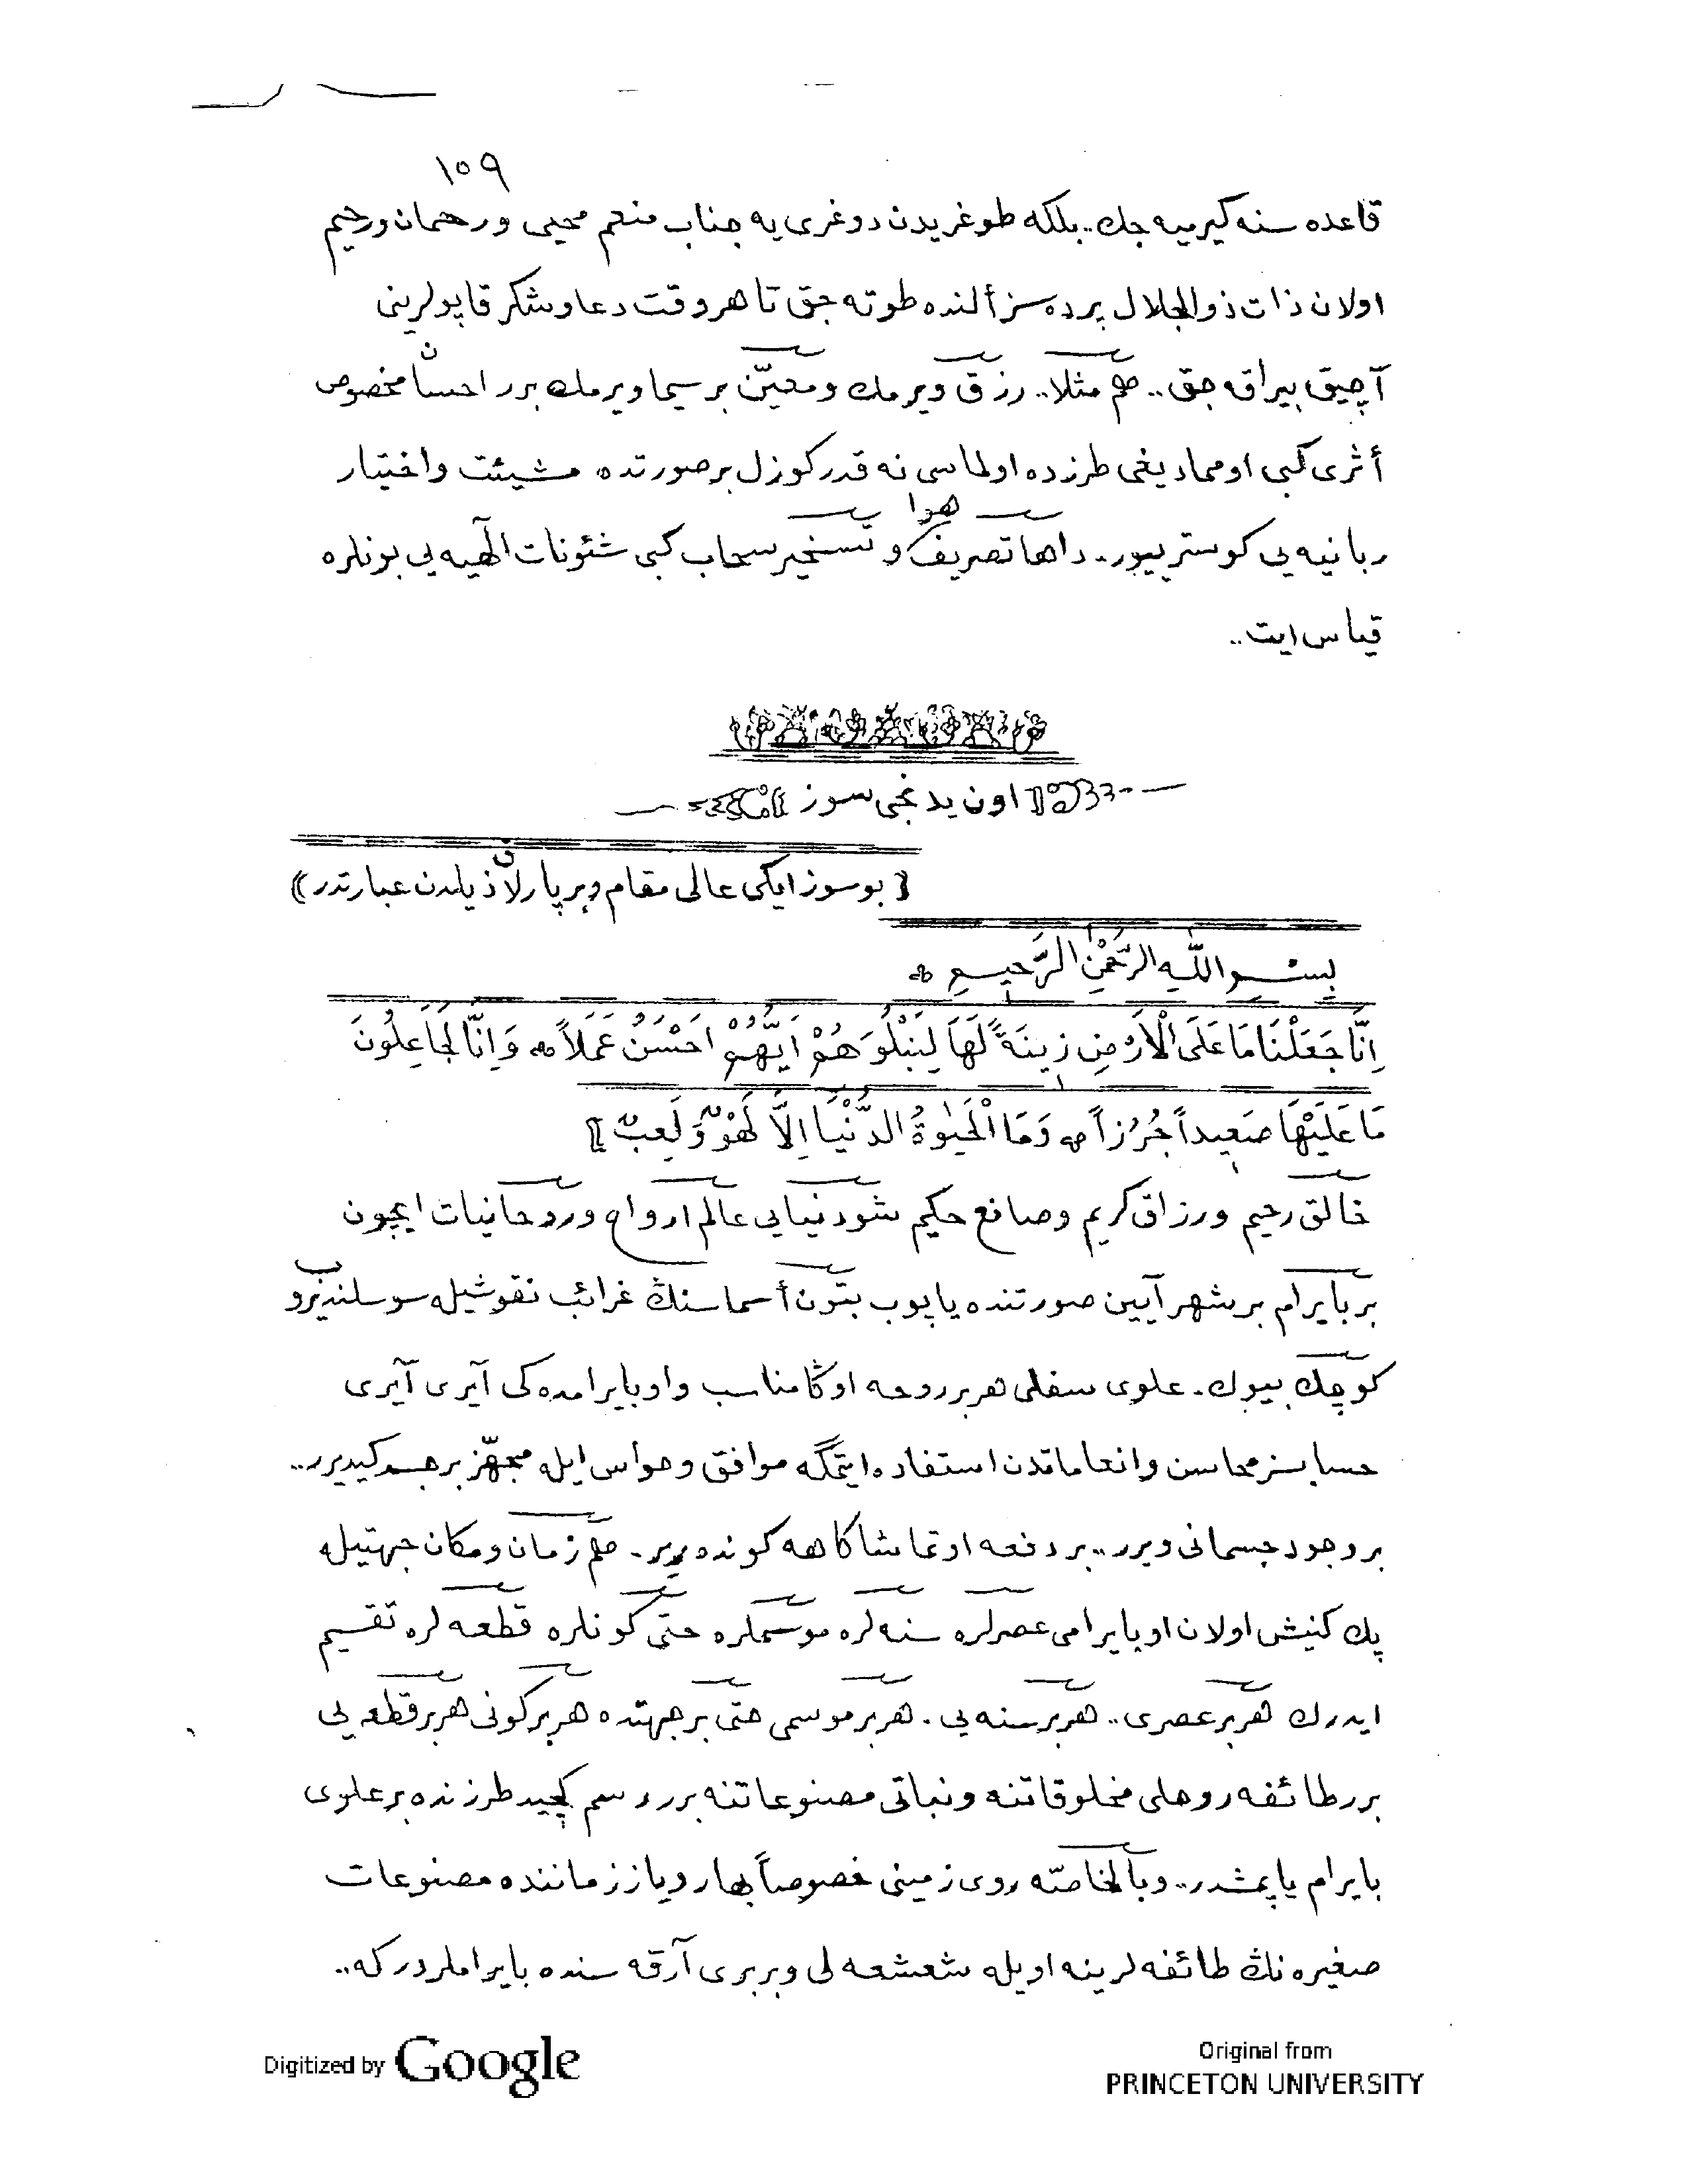 ١٥٩
قاعده سنه كيرميه جك.. بلكه طوغريدن دوغرى يه جناب منعم محيى ورحمان ورحيم
اولان ذات ذوالجلال پرده سز ألنده طوته جق تا هر وقت دعا وشكر قاپولرينى
آچيق بيراقه جق.. هم مثلا.. رزق ويرمك ومعيّن بر سيما ويرمك برر احسان مخصوص
أثرى كبى اومماديغى طرزده اولماسى نه قدر كوزل بر صورتده مشيئت واختيار
ربانيه يى كوستريييور. داها تصريف هوا و تسخير سحاب كبى شئونات الٓهيه يى بونلره
قياس ايت..
اون يدنجى سوز
﴿ بو سوز ايكى عالى مقام وبر پارلاق ذيلدن عبارتدر ﴾
بِسْمِ اللّٰهِ الرَّحْمٰنِ الرَّحِيمِ
اِنَّا جَعَلْنَا مَا عَلَى الْاَرْضِ زِينَةً لَهَا لِنَبْلُوَهُمْ اَيُّهُمْ اَحْسَنُ عَمَلاً ۞ وَاِنَّا لَجَاعِلُونَ
مَا عَلَيْهَا صَعِيداً جُرُزاً ۞ وَمَا الْحَيٰوةُ الدُّنْيَا اِلَّا لَهْوٌ وَلَعِبٌ
خالق رحيم ورزاق كريم وصانع حكيم شو دنيايى عالم ارواح وروحانيات ايچون
بر بايرام بر شهر آيين صورتنده ياپوب بتون أسماسنڭ غرائب نقوشيله سوسلنديروب
كوچك بيوك. علوى سفلى هر بر روحه اوڭا مناسب واو بايرامده كى آيرى آيرى
حسابسز محاسن وانعاماتدن استفاده ايتمگه موافق وحواس ايله مجهّز بر جسد كيديرر..
بر وجود جسمانى ويرر.. بر دفعه او تماشاكاهه كوندهرير. هم زمان ومكان جهتيله
پك كنيش اولان او بايرامى عصرلره سنه لره موسملره حتى كونلره قطعه لره تقسيم
ايدرك هر بر عصرى.. هر بر سنه يى. هر بر موسمى حتى بر جهتده هر بر كونى هر بر قطعه يى
برر طائفه روحلى مخلوقاتنه ونباتى مصنوعاتنه برر رسم كچيد طرزنده بر علوى
بايرام ياپمشدر.. وبالخاصّه روى زمينى خصوصاً بهار وياز زماننده مصنوعات
صغيره نڭ طائفه لرينه اويله شعشعه لى وبربرى آرقه سنده بايراملردر كه..
Digitized by Google
Original from
PRINCETON UNIVERSITY